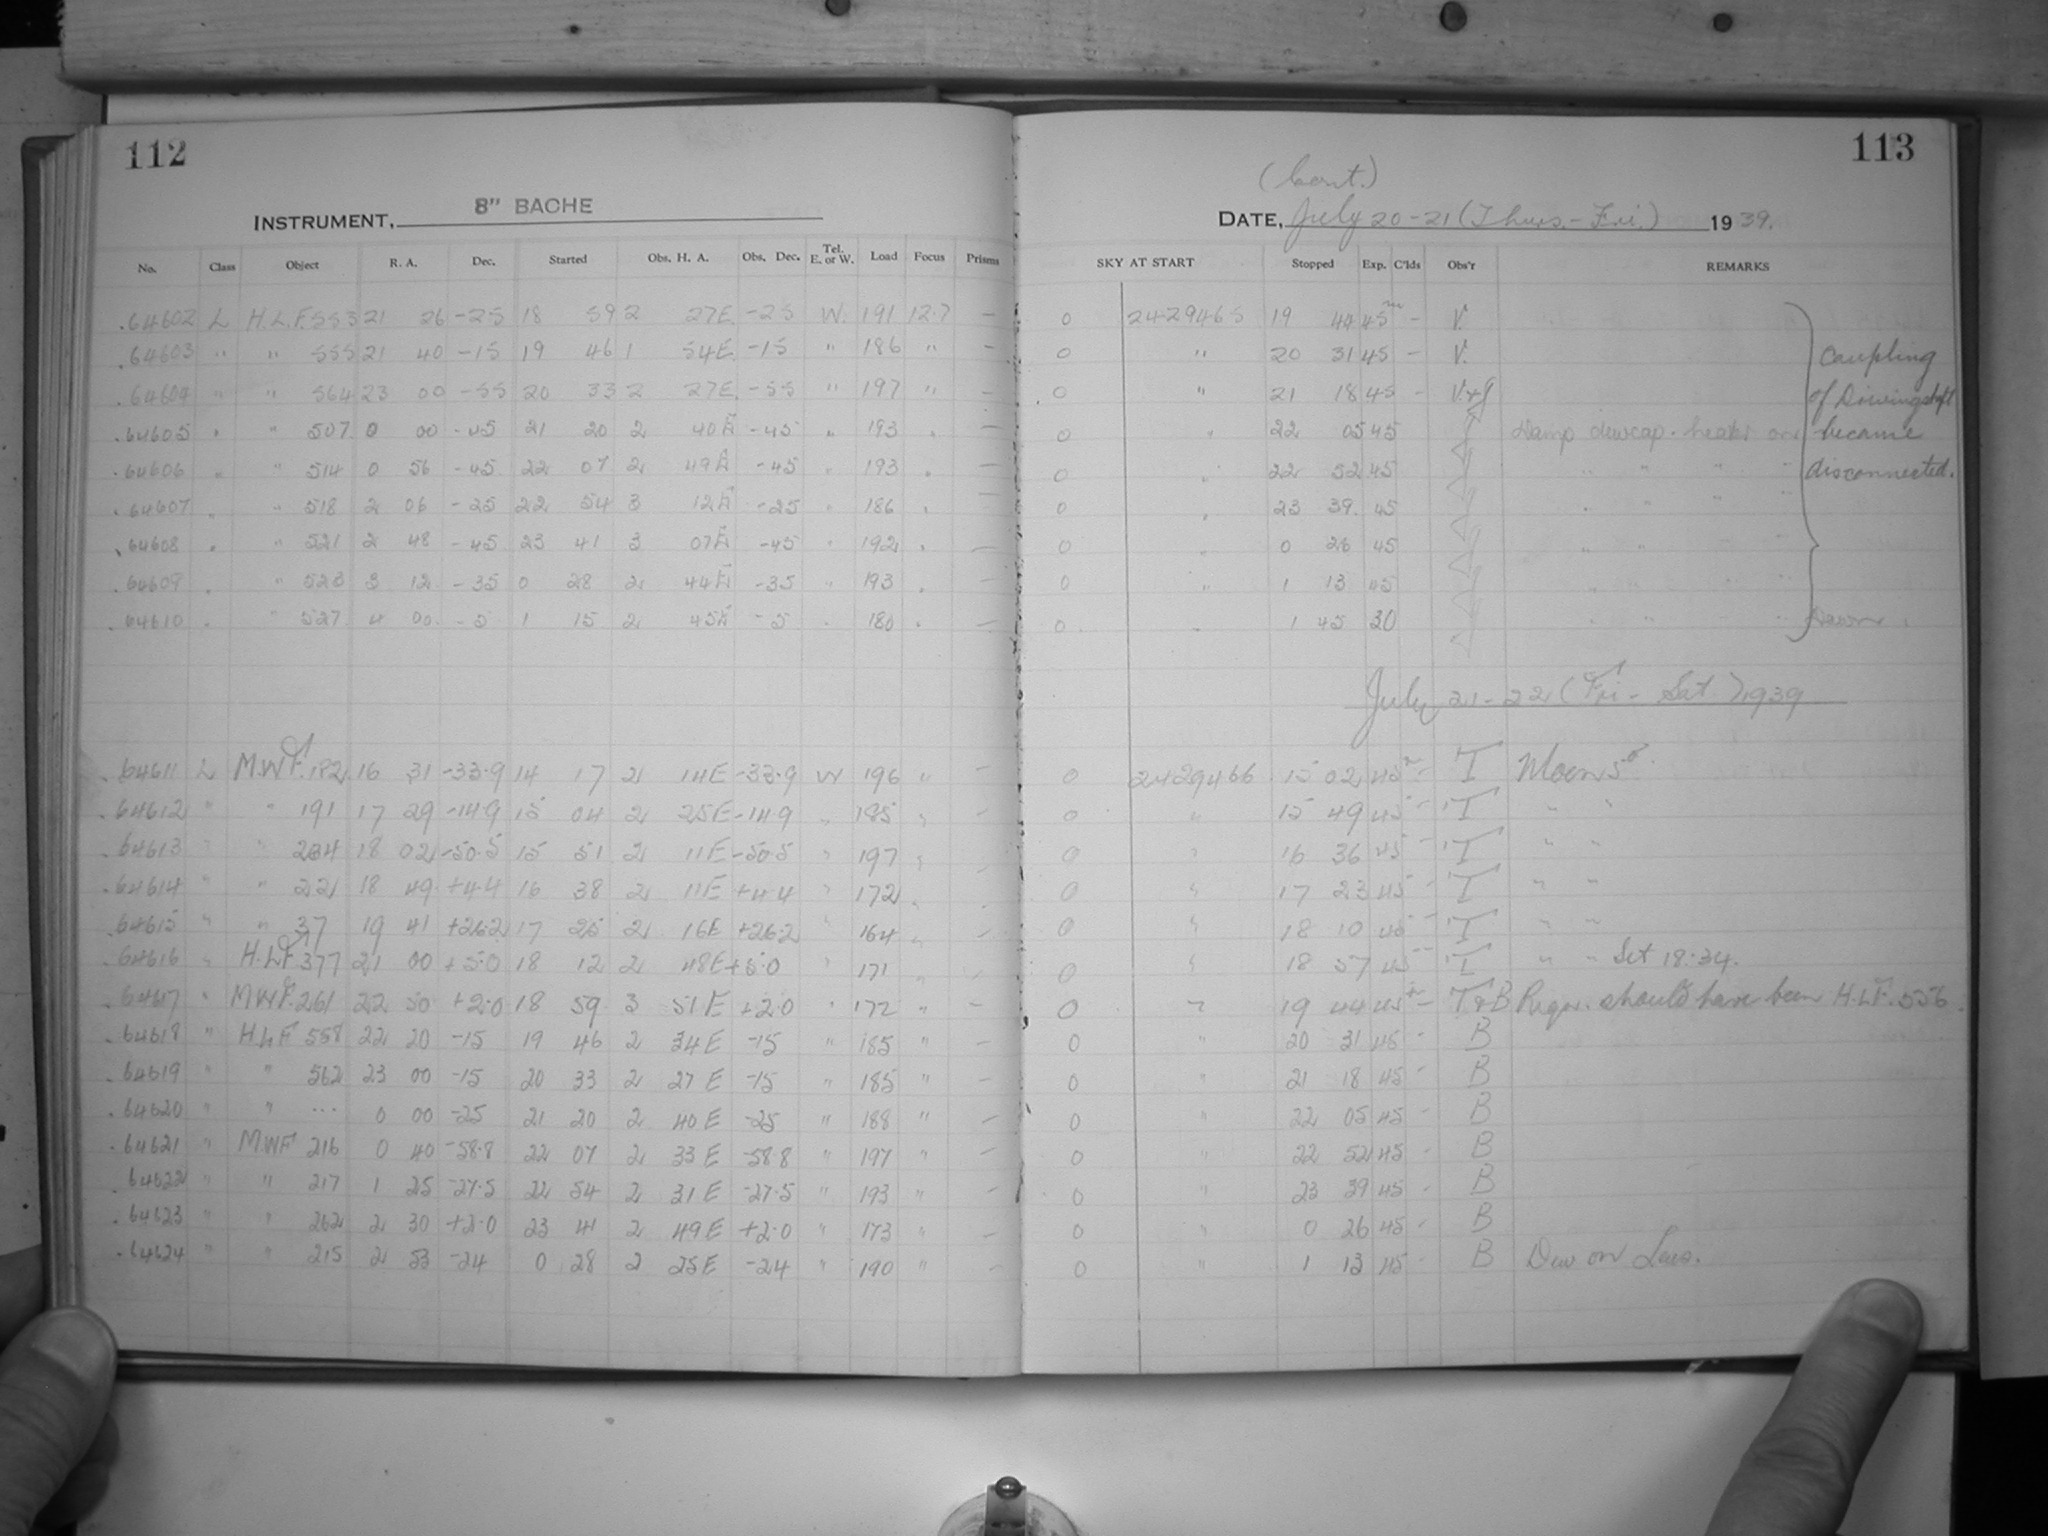 112
INSTRUMENT, 8" BACHE
No. Class Object R. A. Dec. Started Obs. H. A. Obs. Dec. Tel. E. or W. Load Focus Prisms
64602 L H.L.F. 553 21 26 -25 18 59 2 27E -25 W. 191 12.7 —
64603 " " 555 21 40 -15 19 46 1 54E -15 " 186 " —
64604 " " 564 23 00 -55 20 33 2 27E -55 " 197 " —
64605 " " 507 0 00 -45 21 20 2 40E -45 " 193 " —
64606 " " 514 0 56 -45 22 07 2 49E -45 " 193 " —
64607 " " 518 2 06 -25 22 54 3 12E -25 " 186 " —
64608 " " 521 2 48 -45 23 41 3 07E -45 " 192 " —
64609 " " 523 3 12 -35 0 28 2 44E -35 " 193 " —
64610 " " 527 4 00 -5 1 15 2 45E -5 " 180 " —
64611 L M.W.F. 182 16 31 -33.9 14 17 2 14E -33.9 W 196 " —
64612 " " 191 17 29 -14.9 15 04 2 25E -14.9 " 185 " —
64613 " " 234 18 02 -50.5 15 51 2 11E -50.5 " 197 " —
64614 " " 221 18 49 +4.4 16 38 2 11E +4.4 " 172 " —
64615 " " 37 19 41 +26.2 17 25 2 16E +26.2 " 164 " —
64616 " H.L.F. 377 21 00 +5.0 18 12 2 48E +5.0 " 171 " —
64617 " M.W.F. 261 22 50 +2.0 18 59 3 51E +2.0 " 172 " —
64618 " H.L.F 558 22 20 -15 19 46 2 34E -15 " 185 " —
64619 " " 562 23 00 -15 20 33 2 27E -15 " 185 " —
64620 " " ... 0 00 -25 21 20 2 40E -25 " 188 " —
64621 " MWF 216 0 40 -58.8 22 07 2 33E -58.8 " 197 " —
64622 " " 217 1 25 -27.5 22 54 2 31E -27.5 " 193 " —
64623 " " 262 2 30 +2.0 23 41 2 49E +2.0 " 173 " —
64624 " " 215 2 53 -24 0 28 2 25E -24 " 190 " —
113
(Cont.)
DATE, July 20-21 (Thurs.-Fri.) 1939.
SKY AT START Stopped Exp. C'lds Obs'r REMARKS
0 2429465 19 44 45m - V.
0 " 20 31 45 - V. Coupling
0 " 21 18 45 - of Driving shaft
0 " 22 05 45 Damp dewcap. heater on became
0 " 22 52 45 " " " " disconnected.
0 " 23 39 45 " " " "
0 " 0 26 45 " " " "
0 " 1 13 45 " " " "
0 " 1 45 30 " " " " Dawn.
July 21-22 (Fri-Sat) 1939
0 2429466 15 02 45m - T Moon 5d.
0 " 15 49 45 - T " "
0 " 16 36 45 - T " "
0 " 17 23 45 - T " "
0 " 18 10 45 - T " "
0 " 18 57 45 - T " " Set 18:34.
0 " 19 44 45 - T+B should have been H.L.F. 556.
0 " 20 31 45 - B
0 " 21 18 45 - B
0 " 22 05 45 - B
0 " 22 52 45 - B
0 " 23 39 45 - B
0 " 0 26 45 - B
0 " 1 13 45 - B Dew on Lens.